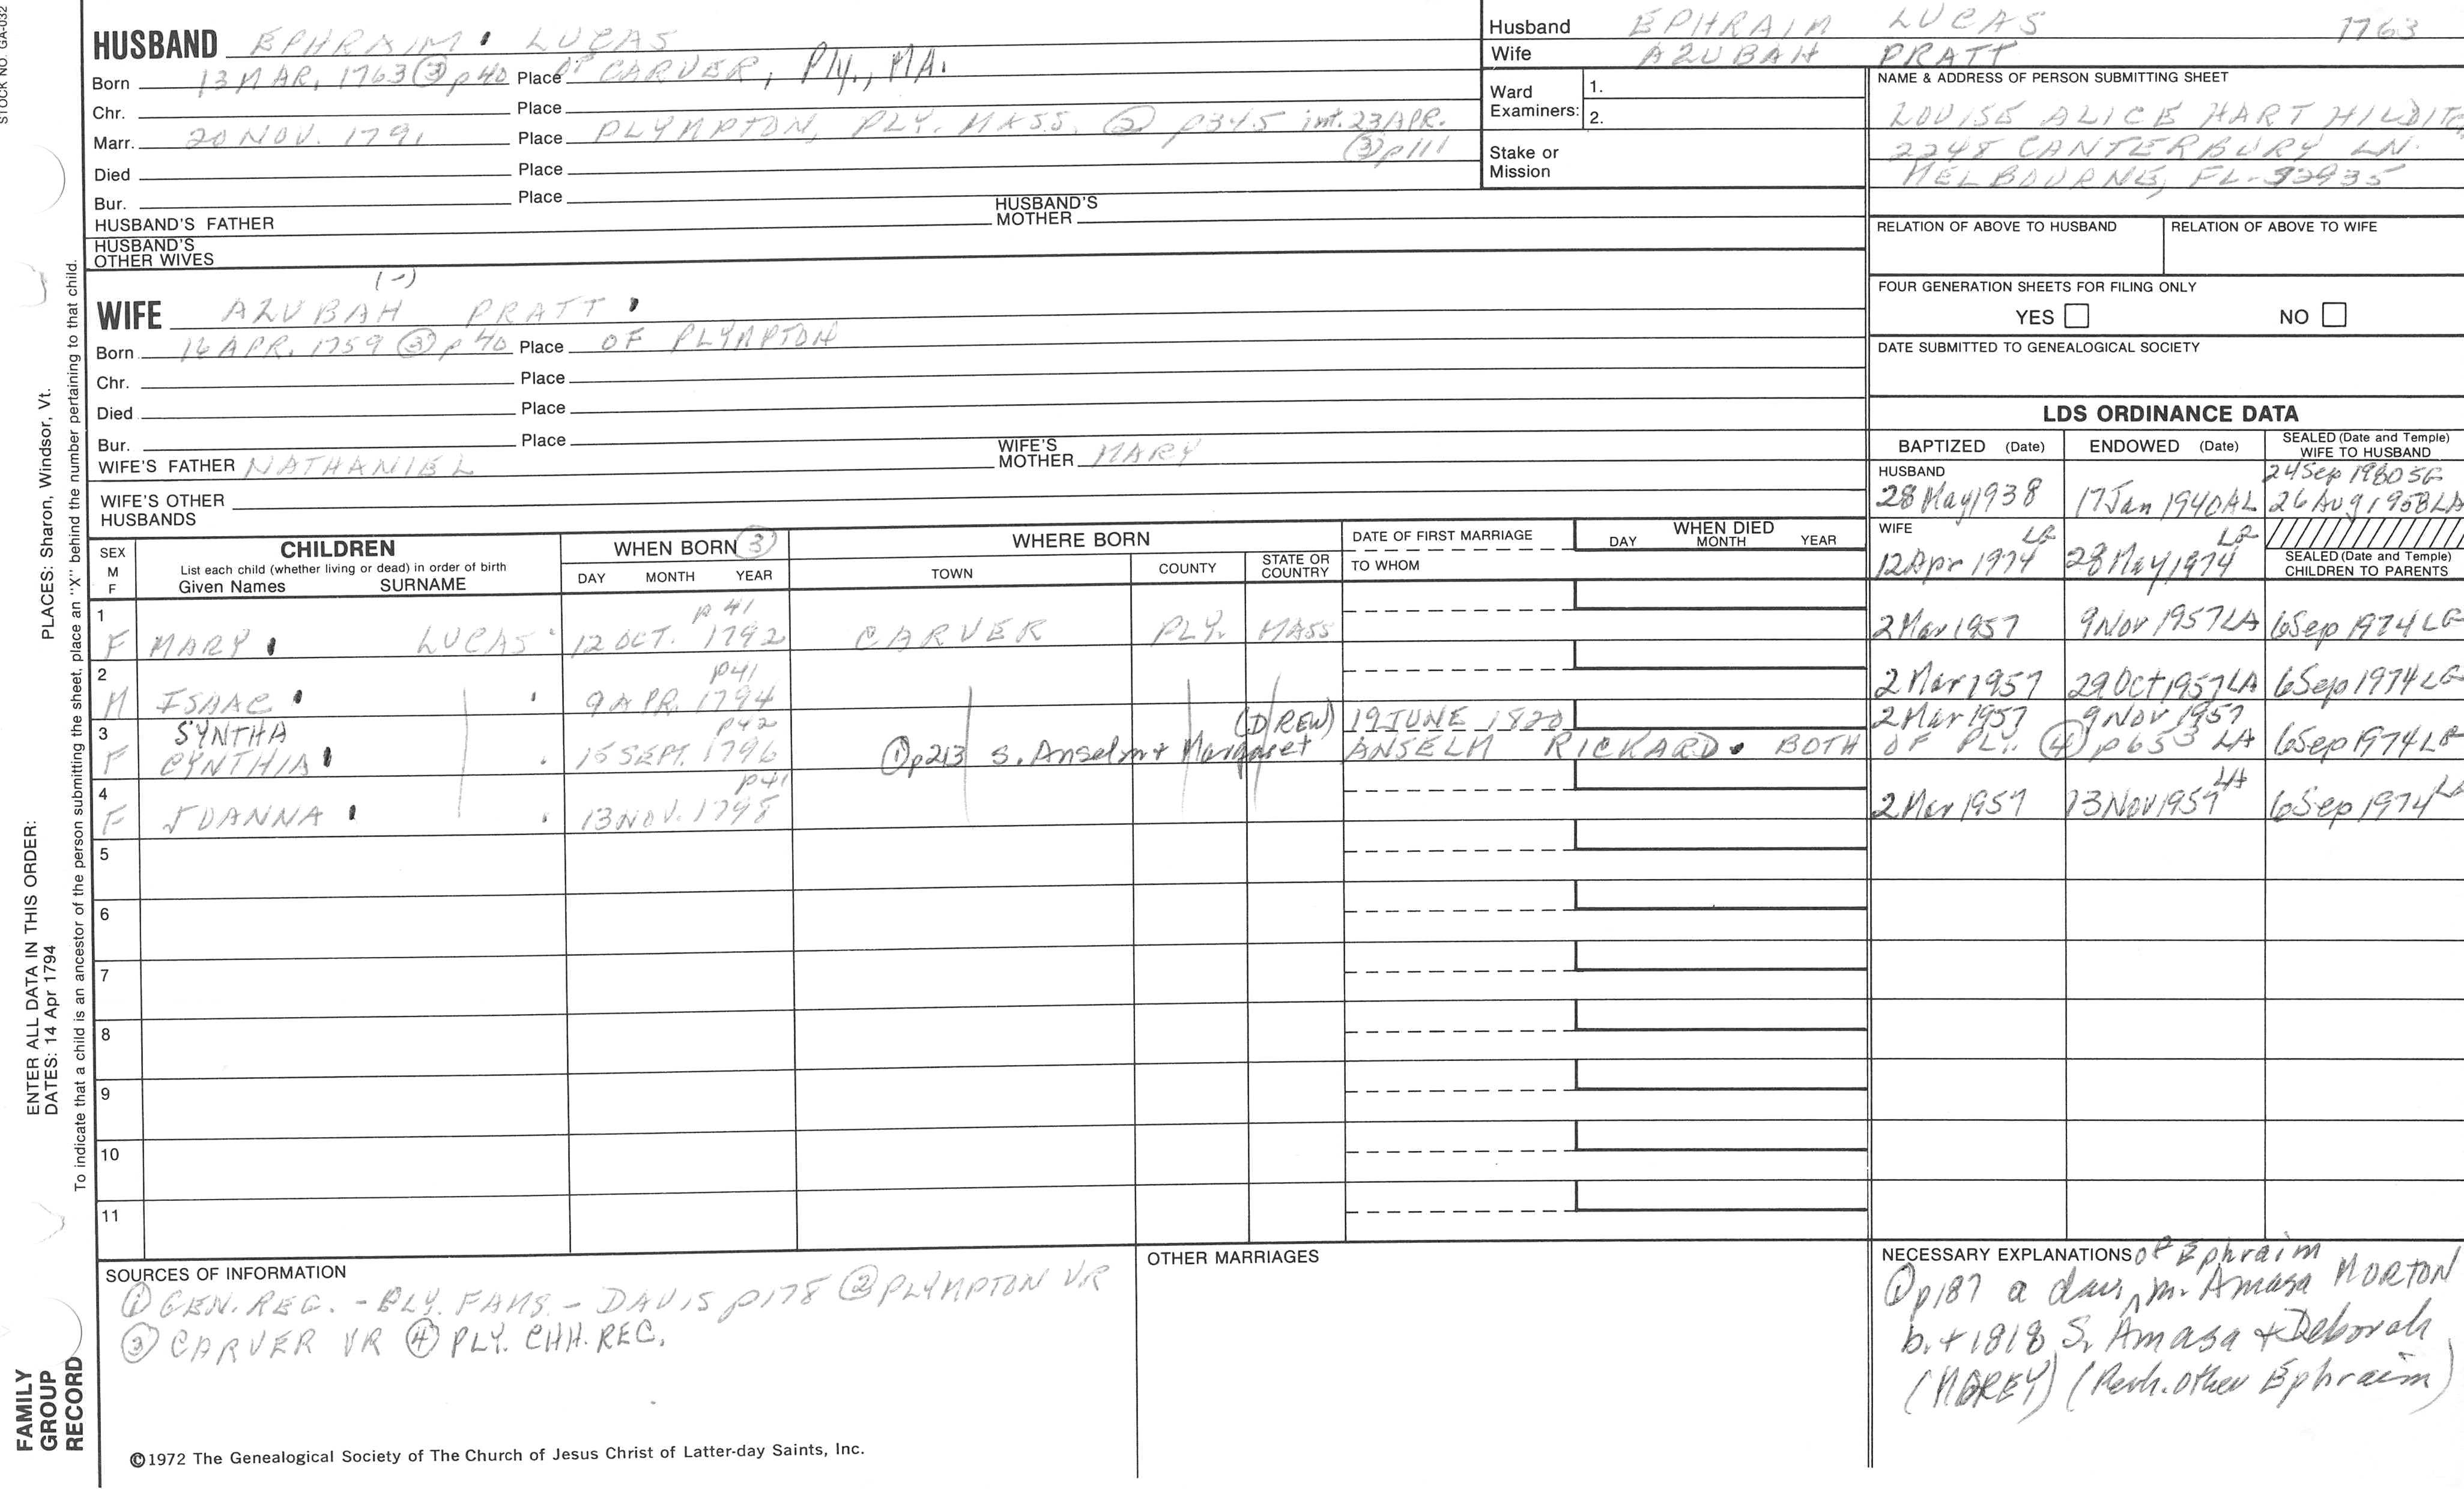 STOCK NO. GA-032
HUSBAND EPHRAIM LUCAS
Born 13 MAR. 1763 ③ p40 Place OF CARVER, Ply., MA.
Chr. Place
Marr. 20 NOV. 1791 Place PLYMPTON, PLY. MASS. ② p345 int. 23 APR.
③ p111
Died Place
Bur. Place
HUSBAND'S FATHER HUSBAND'S MOTHER
HUSBAND'S OTHER WIVES
Husband EPHRAIM LUCAS 1763
Wife AZUBAH PRATT
Ward Examiners: 1.
2.
Stake or Mission
NAME & ADDRESS OF PERSON SUBMITTING SHEET
LOUISE ALICE HART
2248 CANTERBURY LN.
MELBOURNE, FL-32935
RELATION OF ABOVE TO HUSBAND RELATION OF ABOVE TO WIFE
FOUR GENERATION SHEETS FOR FILING ONLY
YES NO
DATE SUBMITTED TO GENEALOGICAL SOCIETY
(-)
WIFE AZUBAH PRATT
Born 16 APR. 1759 ③ p40 Place OF PLYMPTON
Chr. Place
Died Place
Bur. Place
WIFE'S FATHER NATHANIEL WIFE'S MOTHER MARY
WIFE'S OTHER HUSBANDS
LDS ORDINANCE DATA
BAPTIZED (Date) ENDOWED (Date) SEALED (Date and Temple) WIFE TO HUSBAND
HUSBAND 24 Sep 1980 SG
28 May 1938 17 Jan 1940 AL 26 Aug 1958 LA
WIFE
12 Apr 1974 28 May 1974
SEALED (Date and Temple) CHILDREN TO PARENTS
SEX M F CHILDREN WHEN BORN ③ WHERE BORN DATE OF FIRST MARRIAGE WHEN DIED
List each child (whether living or dead) in order of birth
Given Names SURNAME DAY MONTH YEAR TOWN COUNTY STATE OR COUNTRY TO WHOM DAY MONTH YEAR
1 p41
F MARY LUCAS 12 OCT. 1792 CARVER PLY. MASS 2 Mar 1957 9 Nov 1957 LA 6 Sep 1974
2 p41
M ISAAC 9 APR. 1794 2 Mar 1957 29 Oct 1957 LA 6 Sep 1974
3 SYNTHA p42 (DREW) 19 JUNE 1820 2 Mar 1957 9 Nov 1957
F CYNTHIA 15 SEPT. 1796 ① p213 S. Anselm + Margaret ANSELM RICKARD. BOTH OF PLY. ④ p653 LA 6 Sep 1974
4 p41
F JOANNA 13 NOV. 1798 2 Mar 1957 13 Nov 1957 LA 6 Sep 1974
5
6
7
8
9
10
11
SOURCES OF INFORMATION
① GEN. REG. - PLY. FAMS. - DAVIS p178 ② PLYMPTON VR
③ CARVER VR ④ PLY. CHH. REC.
OTHER MARRIAGES
NECESSARY EXPLANATIONS of Ephraim
① p187 a dau. ^ m. Amasa MORTON
b. + 1818 S. Amasa + Deborah
(MOREY) (Perh. other Ephraim)
©1972 The Genealogical Society of The Church of Jesus Christ of Latter-day Saints, Inc.
PLACES: Sharon, Windsor, Vt.
ENTER ALL DATA IN THIS ORDER:
DATES: 14 Apr 1794
To indicate that a child is an ancestor of the person submitting the sheet, place an "X" behind the number pertaining to that child.
FAMILY
GROUP
RECORD